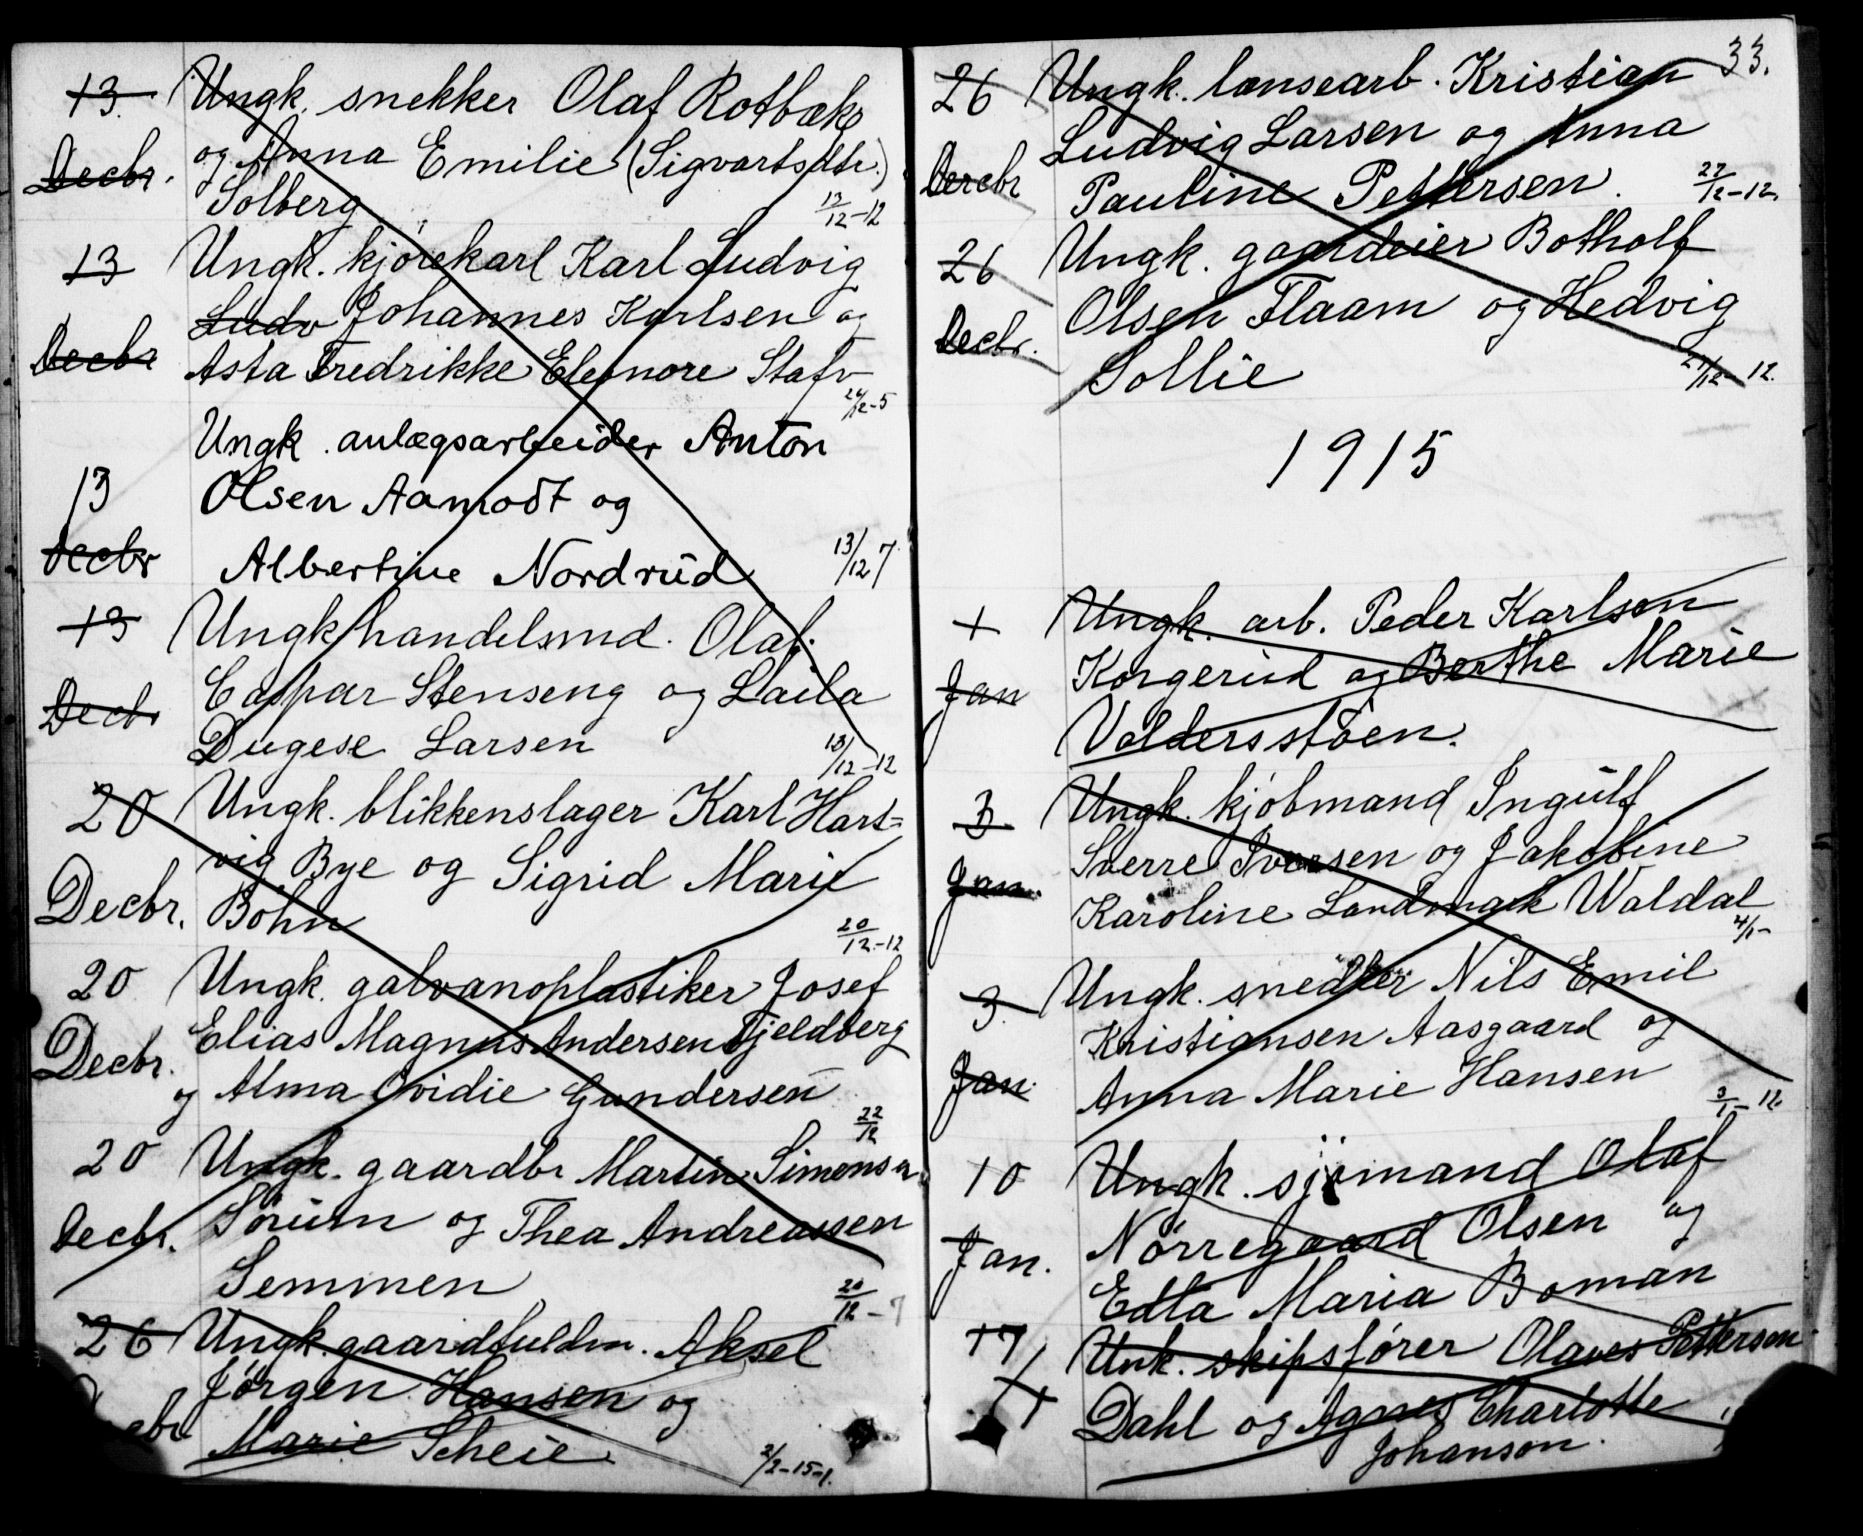 13. Ungk. snekker Olaf Rotbæk
og Anna Emilie (Sigvartsdtr.)
Decbr. Solberg 13/12-12
13 Ungk. kjørekarl Karl Ludvig
Ludv Johannes Karlsen og
Decbr Asta Fredrikke Eleonore Staf 26/12-5
Ungk. anlægsarbeider Anton
13 Olsen Aamodt og
Decbr Albertine Nordrud 13/12 7
13 Ungk handelsmd. Olaf
Decbr Caspar Stenseng og Laila
Dugese Larsen 13/12-12
20 Ungk. blikkenslager Karl Hart=
vig Bye og Sigrid Marie
Decbr. Bøhn 20/12-12
20 Ungk. galvanoplastiker Josef
Elias Magnus Andersen Fjeldberg
Decbr. og Alma Ovidie Gundersen 22/12
20 Ungk. gaardbr Martin Simensen
Decbr. Sørum og Thea Andreassen
Semmen 20/12-7
26 Ungk. gaardfuldm. Aksel
Jørgen Hansen og
Marie Scheie. 2/2-15-1.
33.
26 Ungk. lænsearb. Kristian
Ludvig Larsen og Anna
Decbr Pauline Pettersen. 22/12-12.
26 Ungk. gaardeier Botholf
Olsen Flaam og Hedvig
Decbr. Sollie 21/12-12.
1915
1 Ungk. arb. Peder Karlsen
Jan Korgerud og Berthe Marie
Valdersstøen.
3 Ungk. kjøbmand Ingulf
Sverre Iversen og Jakobine
Jan. Karoline Landmark Waldal 4/1-
3. Ungk. snedker Nils Emil
Kristiansen Aasgaard og
Jan. Anna Marie Hansen 3/1-12.
10 Ungk. sjømand Olaf
Nørregaard Olsen og
Jan. Edla Maria Boman
17/1 Unk. skipsfører Olaves Pettersen
Dahl og Agnes Charlotte
Johanson.